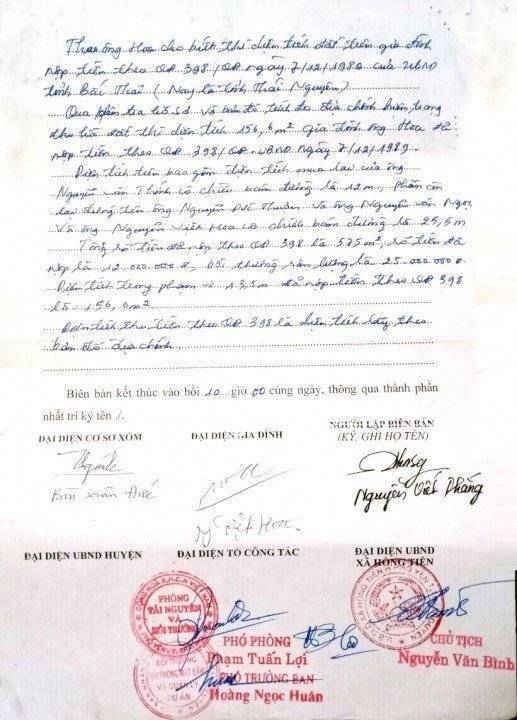 Theo ông Hoa cho biết thì diện tích đất trên gia đình
nộp tiền theo QĐ 398/QĐ ngày 7/12/1989 của UBND
tỉnh Bắc Thái (Nay là tỉnh Thái Nguyên)
Qua kiểm tra hồ sơ và bản đồ trích đo địa chính hiện trạng
thu hồi đất thì diện tích 156,6 m² gia đình ông Hoa đã
nộp tiền theo QĐ 398/QĐ-UBND ngày 7/12/1989.
Diện tích trên bao gồm diện tích mua lại của ông
Nguyễn Văn Thịnh có chiều bám đường là 12m, phần còn
lại đường tiền ông Nguyễn Thuần và ông Nguyễn Văn Ngọc
Và ông Nguyễn Viết Hoa có chiều bám đường là 25,5m
Tổng số tiền đã nộp theo QĐ 398 là 575m², số tiền đã
nộp là 12.000.000đ, bồi thường sản lượng là 25.000.000đ.
Diện tích trong phạm vi 13,5m đã nộp tiền theo QĐ 398
là 156,6m²
Diện tích thu tiền theo QĐ 398 là diện tích lấy theo
bản đồ địa chính
Biên bản kết thúc vào hồi 10 giờ 00 cùng ngày, thông qua thành phần
nhất trí ký tên /.
ĐẠI DIỆN CƠ SỞ XÓM
ĐẠI DIỆN GIA ĐÌNH
NGƯỜI LẬP BIÊN BẢN
(KÝ, GHI HỌ TÊN)
Nguyễn Viết Thắng
Viết Hoa
ĐẠI DIỆN UBND HUYỆN
ĐẠI DIỆN TỔ CÔNG TÁC
ĐẠI DIỆN UBND
XÃ HỒNG TIẾN
PHÒNG
TÀI NGUYÊN
VÀ
MÔI TRƯỜNG
PHÓ PHÒNG
Phạm Tuấn Lợi
PHÓ TRƯỞNG BAN
Hoàng Ngọc Huân
CHỦ TỊCH
Nguyễn Văn Bình